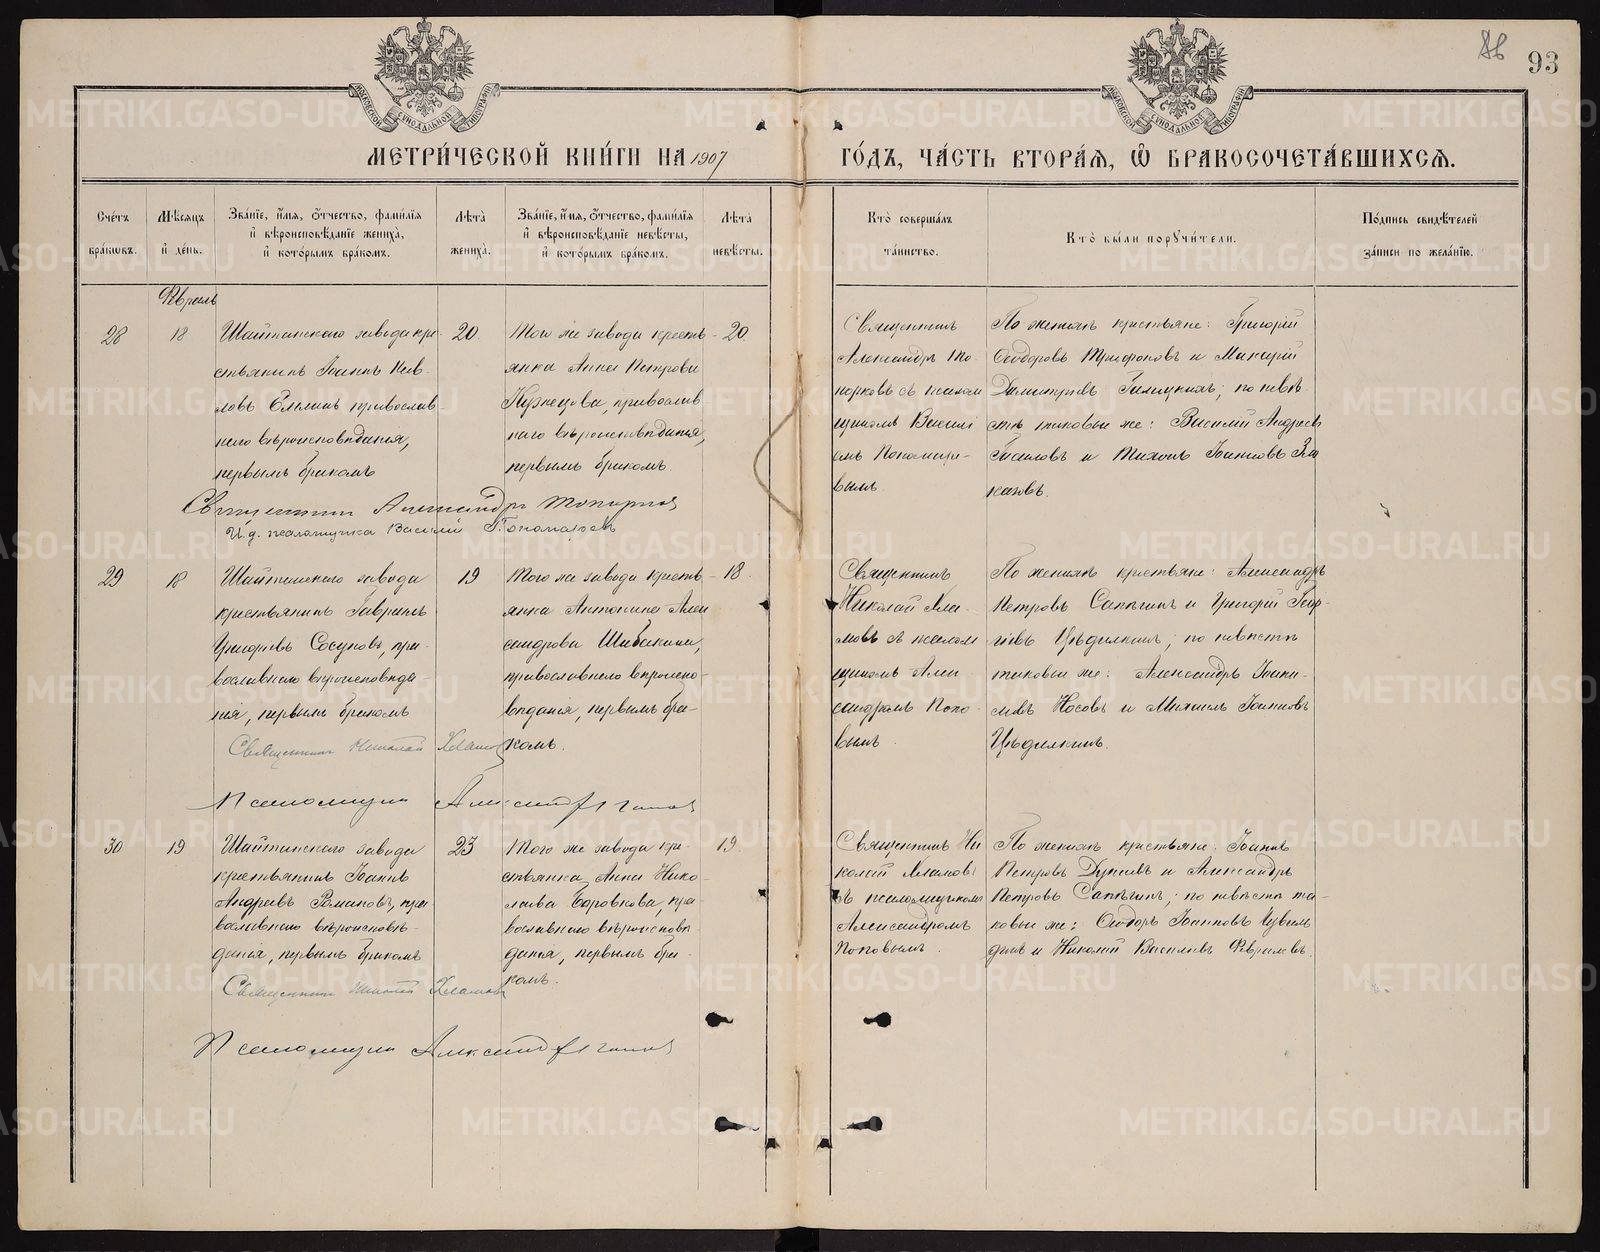 86
93
МЕТРИ́ЧЕСКОЙ КНИ́ГИ НА 1907
ГО́ДЪ, ЧА́СТЬ ВТОРА́Я, Ѽ БРАКОСОЧЕТА́ВШИХСЯ.
Сче́тъ браковъ.
Мѣ́сяцъ и де́нь.
Зва́нїе, и́мя, ѻ́тчество, фами́лїя
и вѣроисповѣ́данїе жениха̀,
и кото́рымъ бра́комъ.
Лѣ́та жениха̀.
Зва́нїе, и́мя, ѻ́тчество, фами́лїя
и вѣроисповѣ́данїе невѣ́сты,
и кото́рымъ бра́комъ.
Лѣ́та невѣ́сты.
Кто̀ соверша́лъ
та́инство.
Кто̀ бы́ли поручи́тели.
По́дпись свидѣ́телей
за́писи по жела́нїю.
Февраль
28
18
Шайтанскаго завода кре-
стьянинъ Іоаннъ Пав-
ловъ
православ-
наго вѣроисповѣданія,
первымъ бракомъ
20.
Того же завода кресть-
янка Анна Петрова
Кузнецова, православ
наго вѣроисповѣданія,
первымъ бракомъ.
20.
Священникъ
Александръ То-
порковъ съ псалом
щикомъ Васили
емъ Пономаре-
вымъ.
По женихѣ крестьяне: Григорій
Ѳеодоровъ Трифоновъ и Макарій
Димитріевъ Галицкихъ; по невѣ-
стѣ таковые же: Василій Андреевъ
и Тихонъ Іоанновъ
Священникъ Александръ Топорковъ
И.д. псаломщика Василій Пономаревъ
29
18
Шайтанскаго завода
крестьянинъ Гавріилъ
Григоріевъ Сосуновъ, пра-
вославнаго вѣроисповѣда-
нія, первымъ бракомъ
19
Того же завода кресть-
янка Антонина Алек
сандрова Шибакина,
православнаго вѣроиспо-
вѣданія, первымъ бра-
комъ.
18.
Священникъ
Николай Хла-
мовъ съ псалом
щикомъ Алек
сандромъ Попо-
вымъ
По женихѣ крестьяне: Александръ
Петровъ Сапѣгинъ и Григорій Геор-
гіевъ
по невѣстѣ
таковые же: Александръ Іоаки-
мовъ Носовъ и Михаилъ Іоанновъ
Священникъ Николай Хламовъ
Псаломщикъ Александръ Поповъ
30
19
Шайтанскаго завода
крестьянинъ Іоаннъ
Андреевъ Романовъ, пра-
вославнаго вѣроисповѣ-
данія, первымъ бракомъ
23
Того же завода кре-
стьянка Анна Нико-
лаева Боровкова, пра-
вославнаго вѣроисповѣ-
данія, первымъ бра-
комъ.
19
Священникъ Ни
колай Хламовъ
съ псаломщикомъ
Александромъ
Поповымъ.
По женихѣ крестьяне: Іоаннъ
Петровъ и Александръ
Петровъ Сапѣгинъ; по невѣстѣ та-
ковые же: Ѳеодоръ Іоанновъ
и Николай Васильевъ Февралевъ.
Священникъ Николай Хламовъ
Псаломщикъ Александръ Поповъ
METRIKI.GASO-URAL.RU